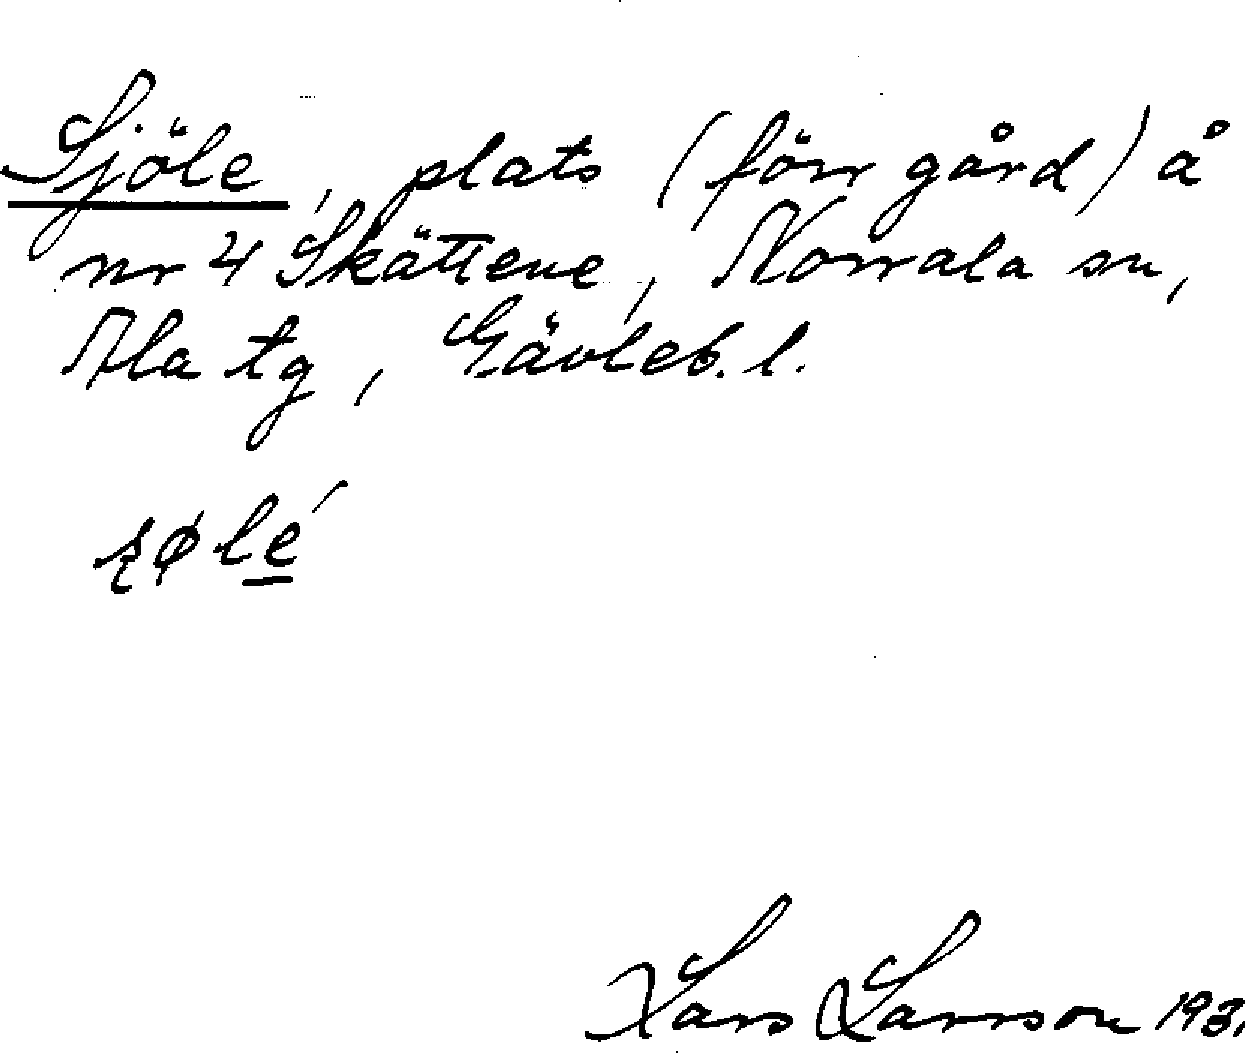 Sjöle, plats (förr gård) å
nr 4 Skättene, Norrala sn,
Ala tg, Gävleb. l.
Lars Larsson 193.